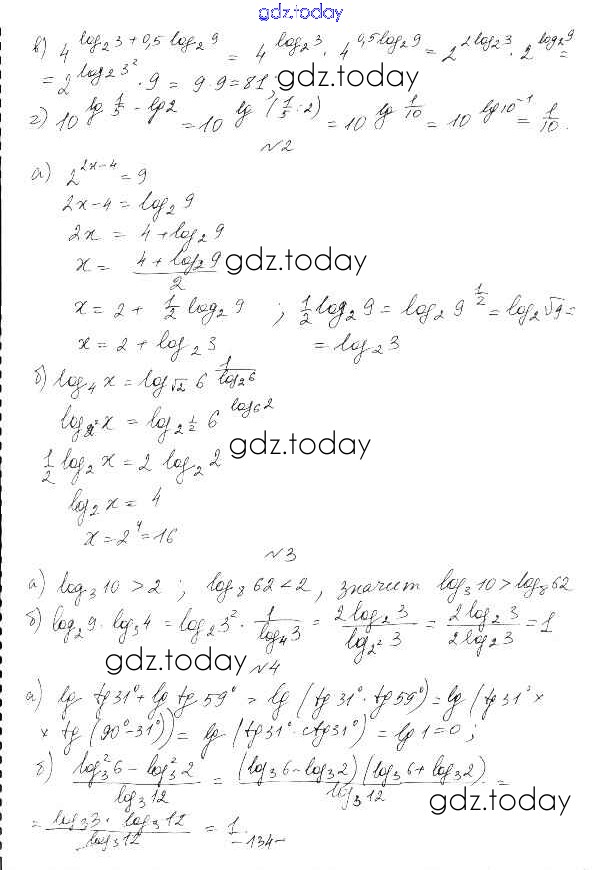 gdz.today
в) 4^{log₂3 + 0,5 log₂9} = 4^{log₂3} · 4^{0,5 log₂9} = 2^{2log₂3} · 2^{log₂9} =
= 2^{log₂3²} · 9 = 9·9 = 81; gdz.today
г) 10^{lg 1/5 − lg2} = 10^{lg (1/5 : 2)} = 10^{lg 1/10} = 10^{lg10⁻¹} = 1/10.
№2
а) 2^{2x−4} = 9
2x−4 = log₂9
2x = 4 + log₂9
x = (4 + log₂9)/2 gdz.today
x = 2 + 1/2 log₂9 ; 1/2 log₂9 = log₂9^{1/2} = log₂√9 =
x = 2 + log₂3 = log₂3
б) log₄x = log_{√2} 6^{1/log₂6}
log_{2²}x = log_{2^{1/2}} 6^{log₆2}
gdz.today
1/2 log₂x = 2 log₂2
log₂x = 4
x = 2⁴ = 16
№3
а) log₃10 > 2 ; log₈62 < 2, значит log₃10 > log₈62
б) log₂9 · log₃4 = log₂3² · 1/log₄3 = 2log₂3/log_{2²}3 = 2log₂3/2log₂3 = 1
gdz.today
№4
а) lg tg31° + lg tg59° = lg (tg31° · tg59°) = lg (tg31° ×
× tg (90°−31°)) = lg (tg31° · ctg31°) = lg1 = 0;
б) (log₃²6 − log₃²2)/log₃12 = (log₃6 − log₃2)(log₃6 + log₃2)/log₃12 =
gdz.today
= log₃3 · log₃12/log₃12 = 1.
−134−